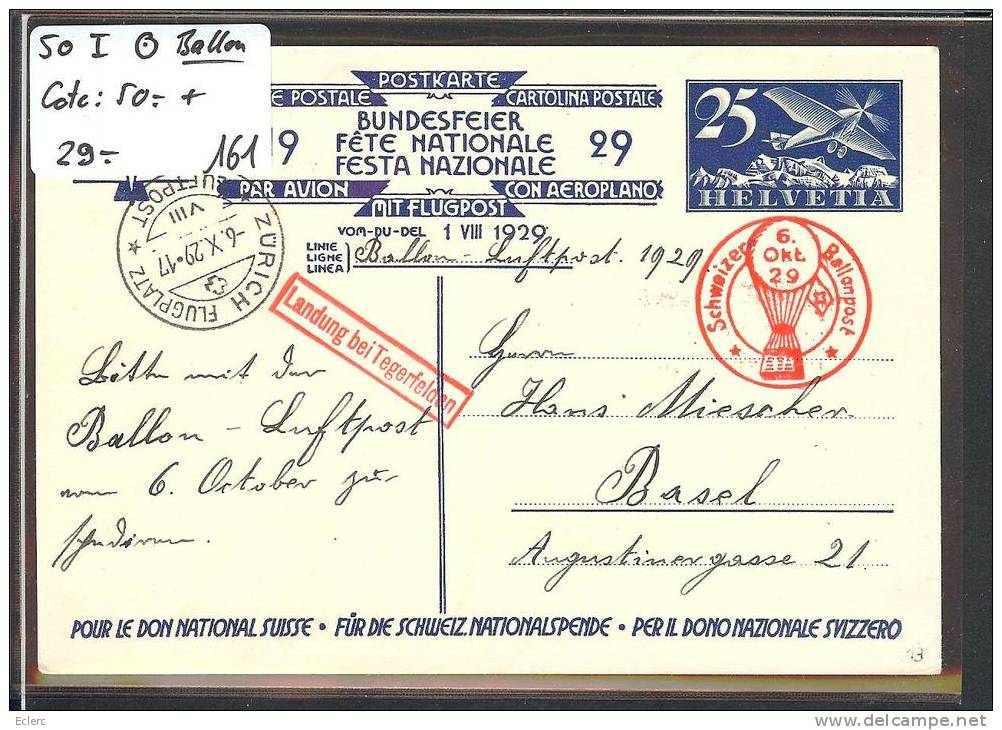 50 I ⊙ Ballon
Cote: 50.- +
29.-
161
POSTKARTE
E POSTALE
CARTOLINA POSTALE
BUNDESFEIER
FÊTE NATIONALE
FESTA NAZIONALE
9
29
PAR AVION
CON AEROPLANO
MIT FLUGPOST
VOM-DU-DEL 1 VIII 1929
LINIE
LIGNE
LINEA
Ballon-Luftpost. 1929.
25
HELVETIA
ZÜRICH FLUGPLATZ
LUFTPOST
VIII
-6.X.29-17
Schweizer Ballonpost
6.
Okt.
29
Landung bei Tegerfelden
Bitte mit der
Ballon-Luftpost
vom 6. October zu-
Herrn
Hans Miescher.
Basel
Augustinergasse 21.
POUR LE DON NATIONAL SUISSE • FÜR DIE SCHWEIZ. NATIONALSPENDE • PER IL DONO NAZIONALE SVIZZERO
Eclerc
www.delcampe.net